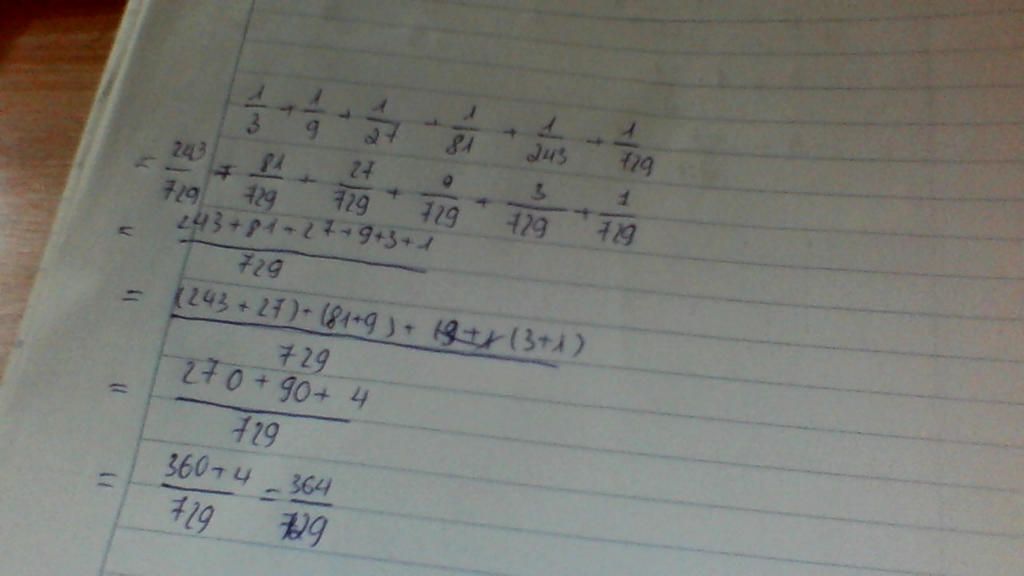 1/3 + 1/9 + 1/27 + 1/81 + 1/243 + 1/729
= 243/729 + 81/729 + 27/729 + 9/729 + 3/729 + 1/729
= (243+81+27+9+3+1)/729
= ((243+27)+(81+9)+(3+1))/729
= (270+90+4)/729
= (360+4)/729 = 364/729